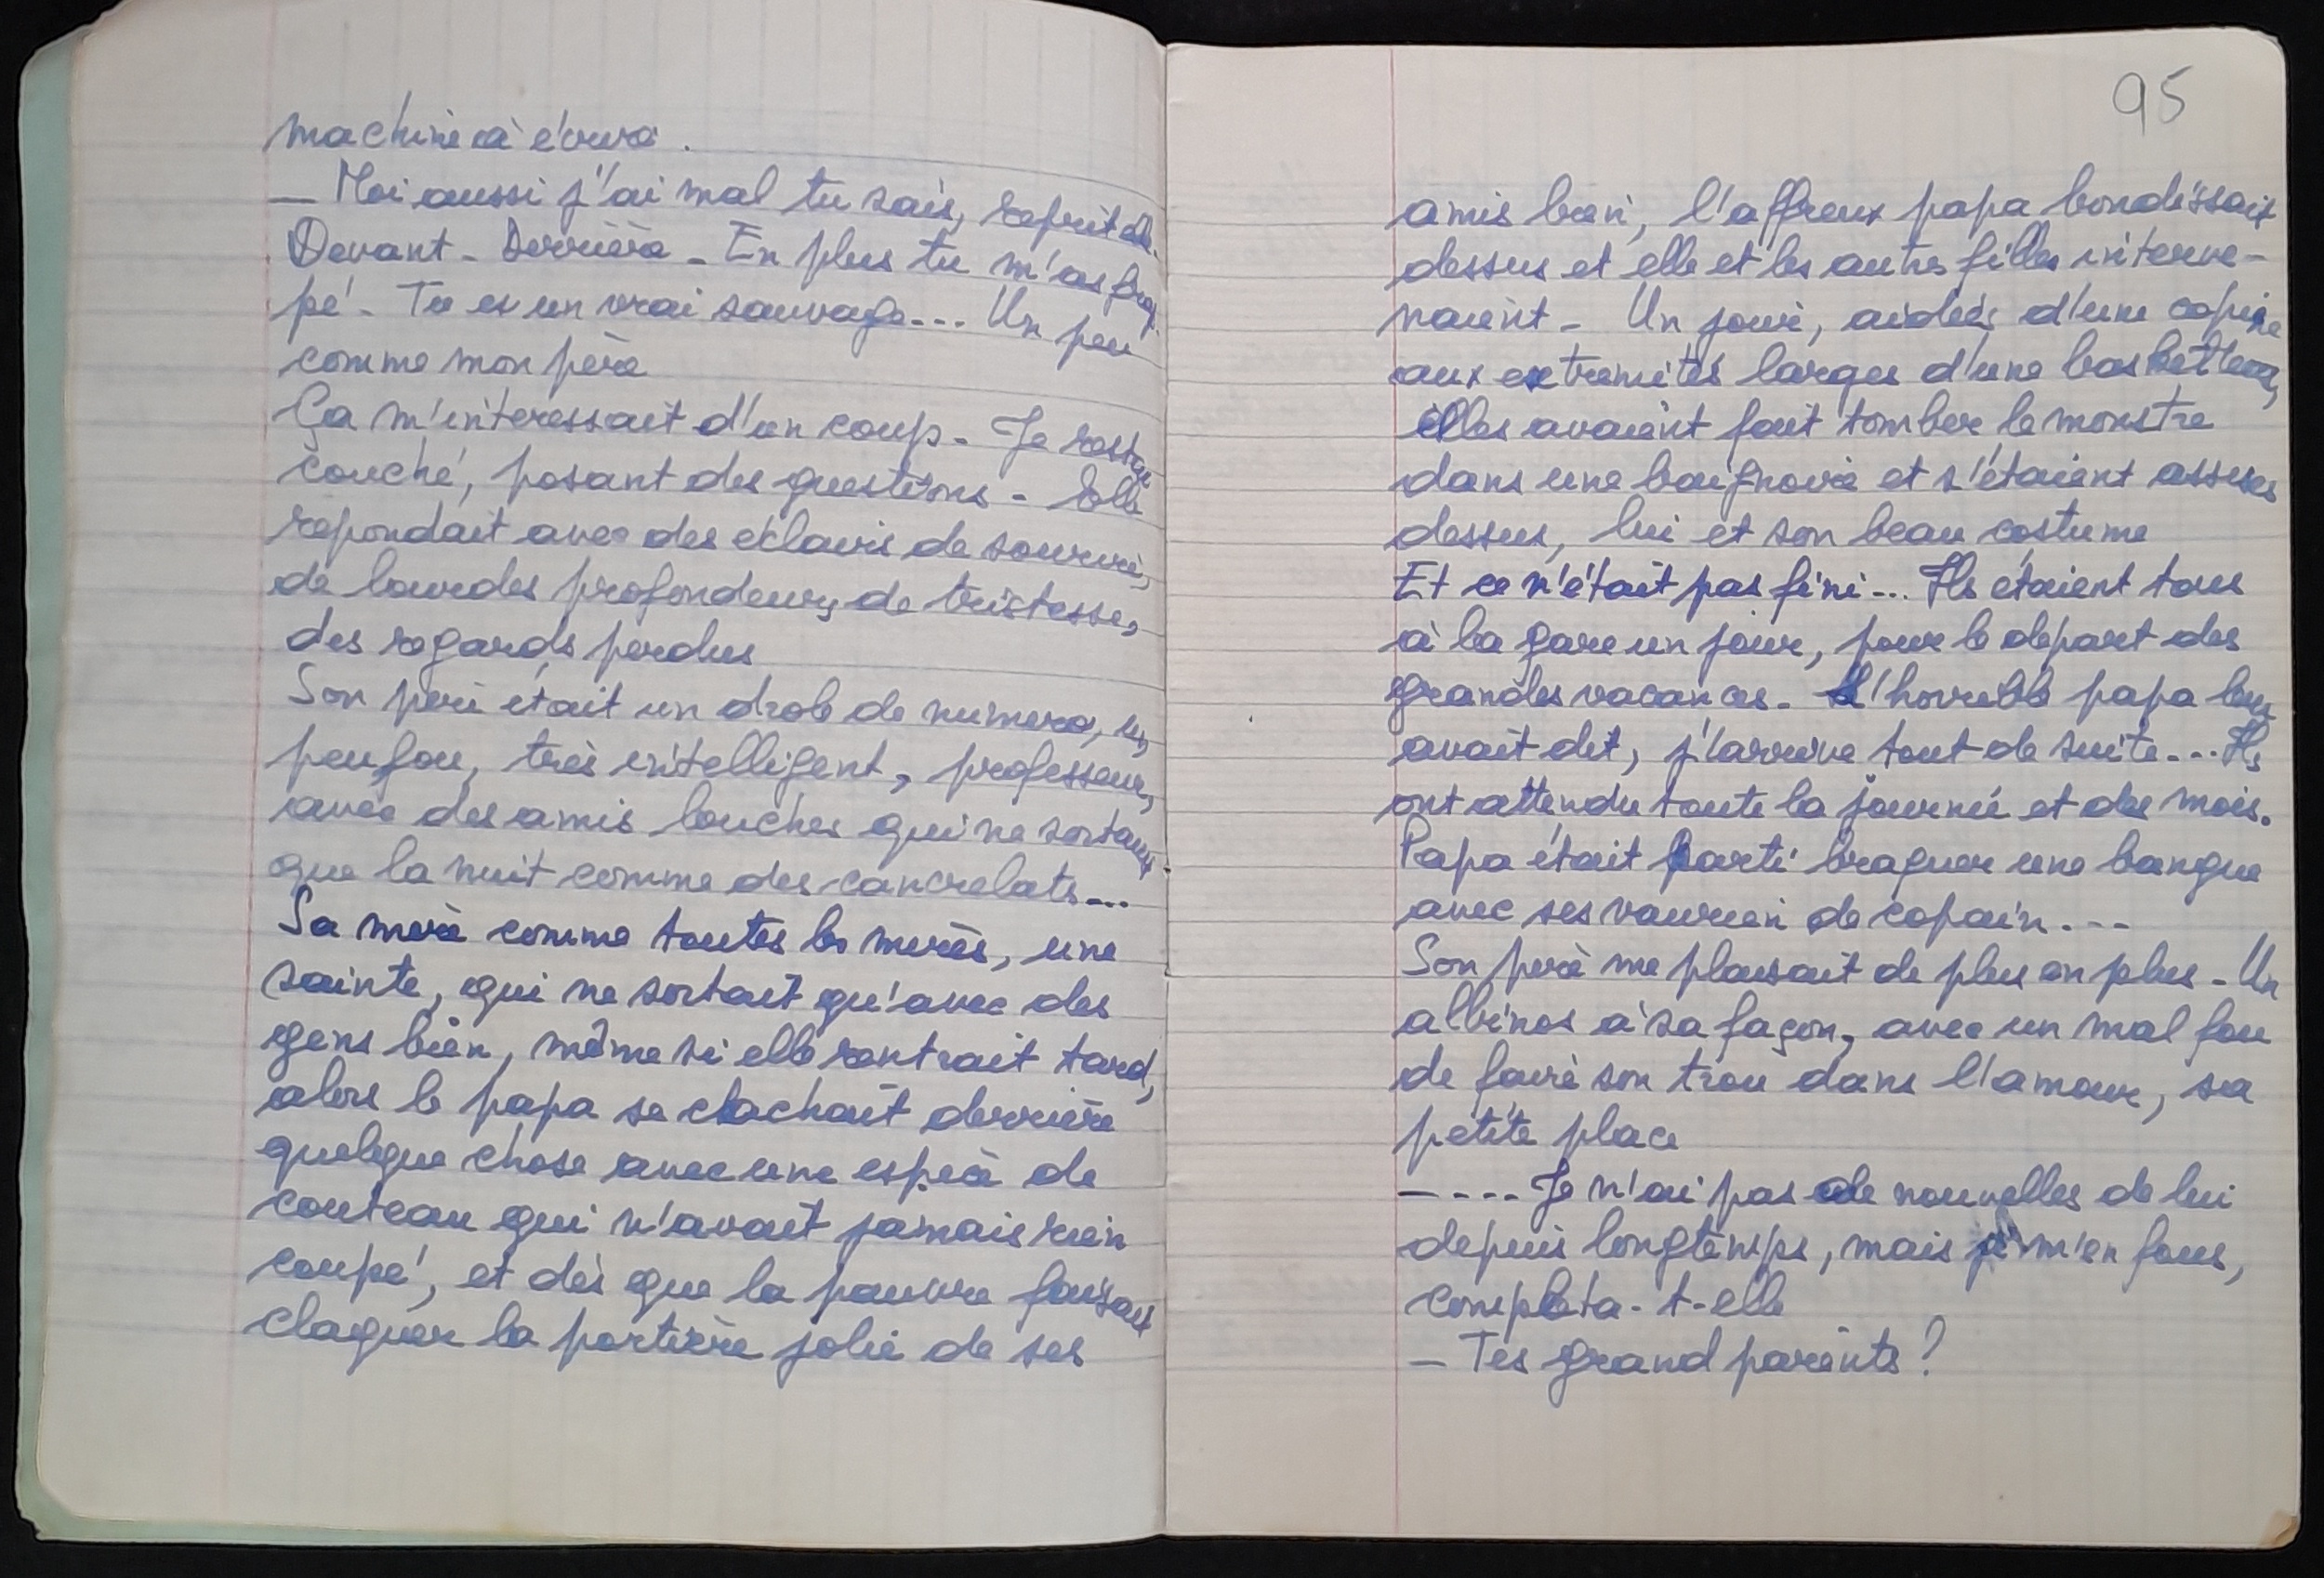 machine à écrire.
— Moi aussi j'ai mal tu sais, reprit elle.
Devant - Derrière - En plus tu m'as frap-
pé - Tu es un vrai sauvage... Un peu
comme mon père
Ça m'interessait d'un coup - Je restai
couché, posant des questions - Elle
repondait avec des eclairs de sourire,
de lourdes profondeurs de tristesse,
des regards perdus
Son père était un drole de numero, un
peu fou, très intelligent, professeur,
avec des amis louches qui ne sortaient
que la nuit comme des cancrelats...
Sa mère comme toutes les mères, une
sainte, qui ne sortait qu'avec des
gens bien, même si elle rentrait tard,
alors le papa se cachait derrière
quelque chose avec une espèce de
couteau qui n'avait jamais rien
coupé, et dès que la pauvre faisait
claquer la portière jolie de ses
95
amis bien, l'affreux papa bondissait
dessus et elle et les autres filles interve-
naient - Un jour, aidées d'une copine
aux extremités larges d'une basketteuse,
elles avaient fait tomber le monstre
dans une baignoire et s'étaient assises
dessus, lui et son beau costume
Et ce n'était pas fini... Ils étaient tous
à la gare un jour, pour le depart des
grandes vacances. L'horrible papa leur
avait dit, j'arrive tout de suite... Ils
ont attendu toute la journée et des mois.
Papa était parti braquer une banque
avec ses vaurien de copain...
Son père me plaisait de plus en plus - Un
albinos à sa façon, avec un mal fou
de faire son trou dans l'amour, sa
petite place
— ... Je n'ai pas de nouvelles de lui
depuis longtemps, mais je m'en fous,
completa-t-elle
— Tes grand parents?